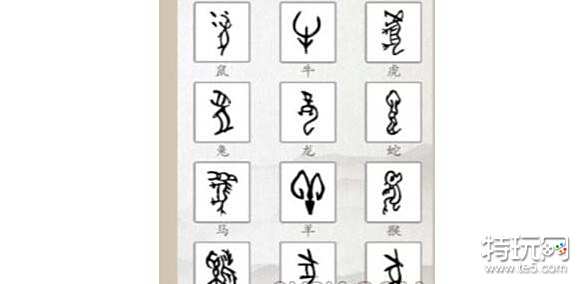 鼠 牛 虎
兔 龙 蛇
马 羊 猴
特玩网
www.te5.com